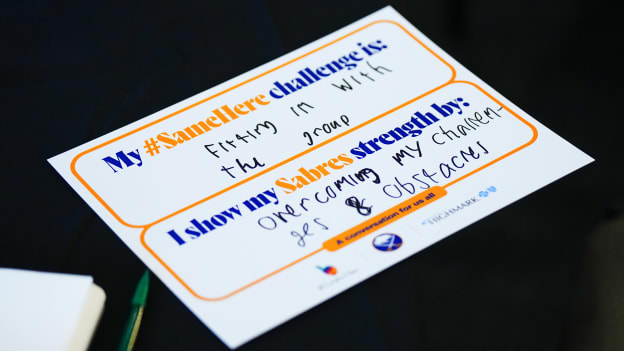 My #SameHere challenge is:
Fitting in with
the group
I show my Sabres strength by:
overcoming my challen-
ges & Obstacles
A conversation for us all
HIGHMARK